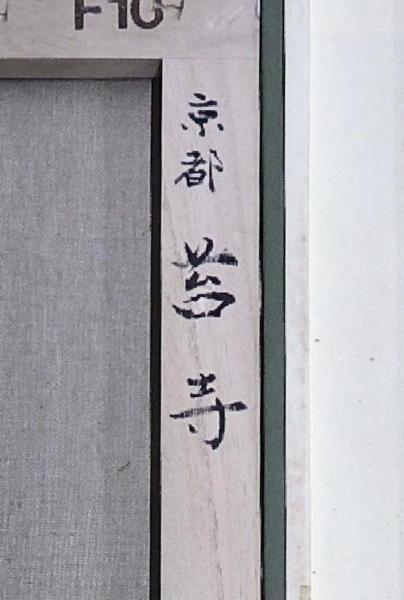 F10
京都 苔寺